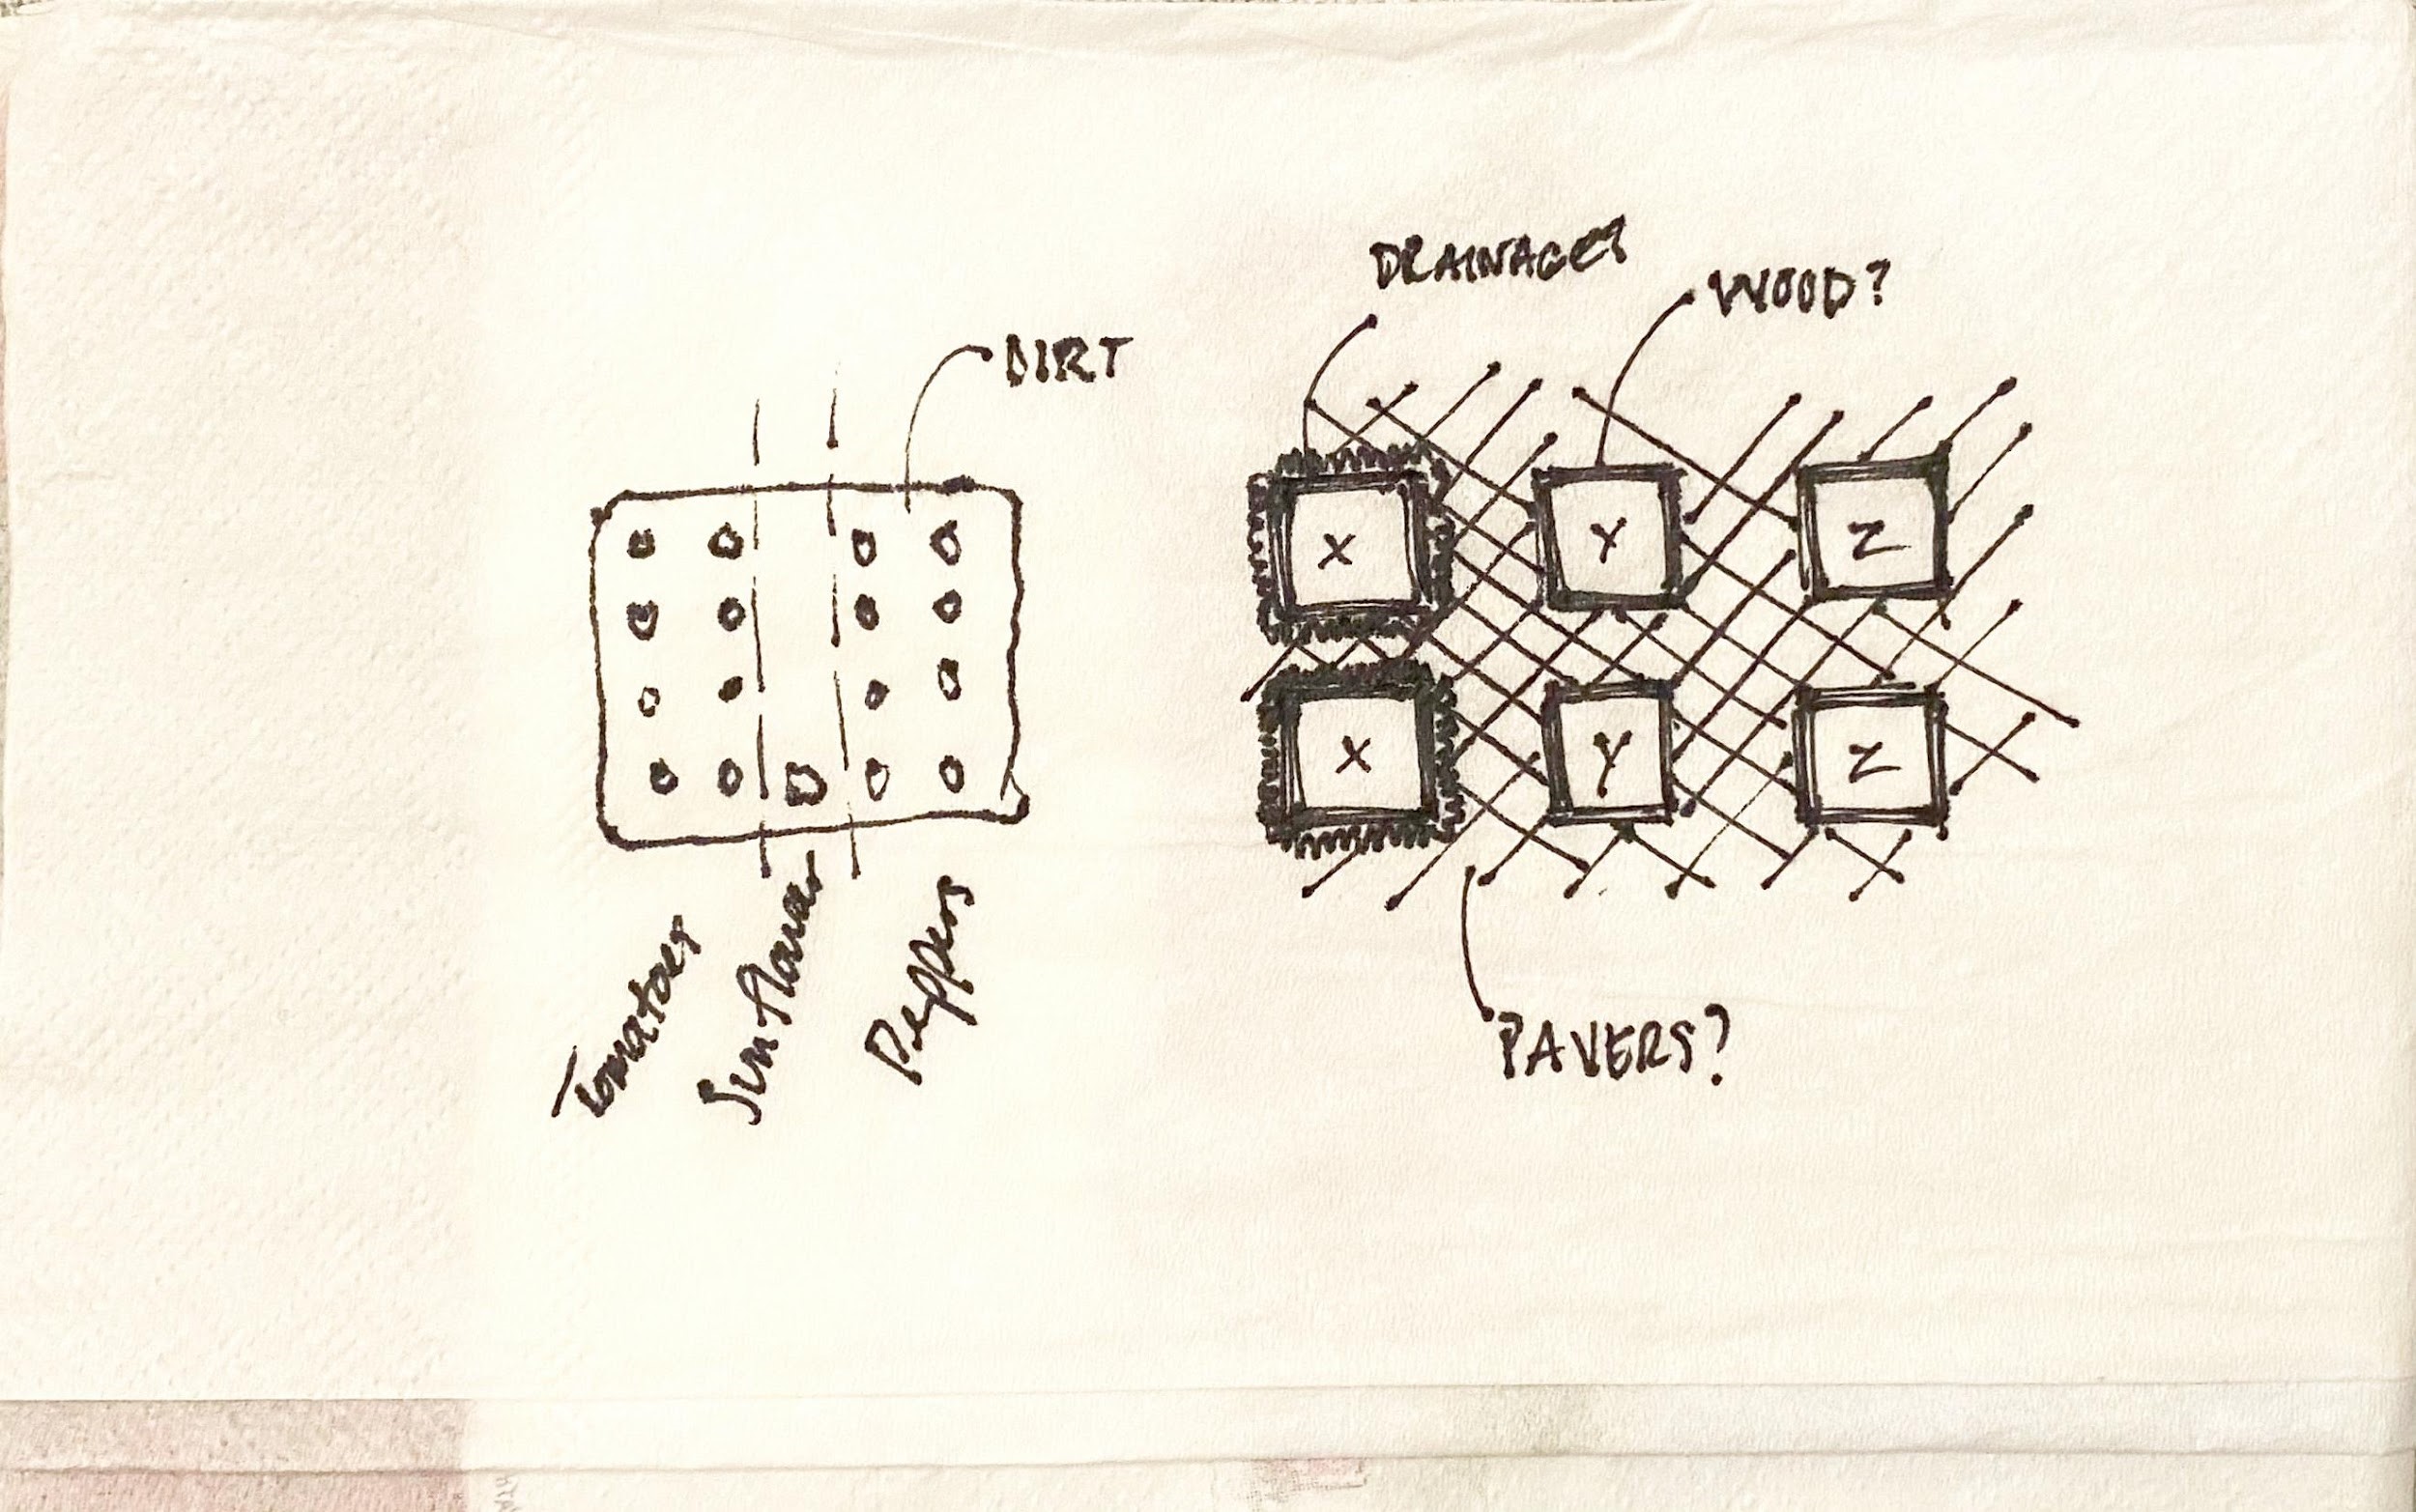 DIRT
Tomatoes
Sunflower
Peppers
DRAINAGE?
WOOD?
X Y Z
X Y Z
PAVERS?